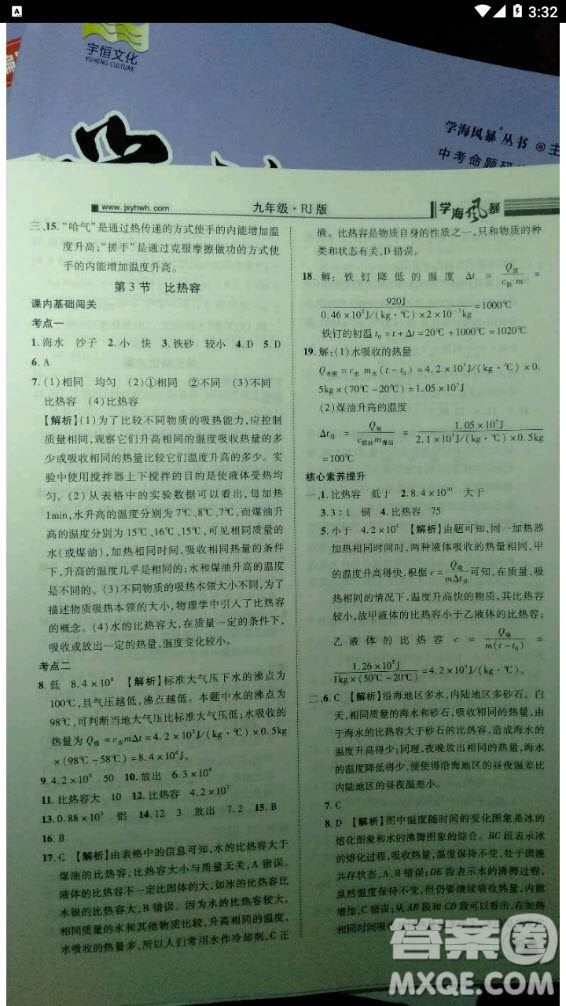 A
3:32
宇恒文化
YUHENG CULTURE
学海风暴丛书
主
中考命题研
www.jxyhwh.com
九年级·RJ版
学海风暴
三、15.“哈气”是通过热传递的方式使手的内能增加温
度升高;“搓手”是通过克服摩擦做功的方式使
手的内能增加温度升高。
第3节 比热容
课内基础闯关
考点一
1.海水 沙子 2.小 快 3.铁砂 较小 4.D 5.D
6.A
7.(1)相同 均匀 (2)①相同 ②不同 (3)不同
比热容 (4)比热容
【解析】(1)为了比较不同物质的吸热能力,应控制
质量相同,观察它们升高相同的温度吸收热量的多
少或吸收相同的热量比较它们温度升高的多少。实
验中使用搅拌器上下搅拌的目的是使液体受热均
匀。(2)从表格中的实验数据可以看出,每加热
1min,水升高的温度分别为7℃、8℃、7℃,而煤油升
高的温度分别为15℃、16℃、15℃,可见相同质量的
水(或煤油),加热相同时间,吸收相同热量的条件
下,升高的温度几乎是相同的;水和煤油升高的温度
是不同的。(3)不同物质的吸热本领大小不同,为了
描述物质吸热本领的大小,物理学中引入了比热容
的概念。(4)水的比热容大,在质量一定的条件下,
吸收或放出一定的热量,温度变化较小。
考点二
8.低 8.4×10⁴ 【解析】标准大气压下水的沸点为
100℃,且气压越低,沸点越低。本题中水的沸点为
98℃,可判断当地大气压比标准大气压低;水吸收的
热量为Q吸=c水mΔt=4.2×10³J/(kg·℃)×0.5kg
×(98℃-58℃)=8.4×10⁴J。
9.4.2×10³ 50 10.放出 6.3×10⁴
11.比热容大 10 12.比热容
13.0.88×10³ 铝 14.12 3 放出 7.2 15.B
16.B
17.C 【解析】由表格中的信息可知,水的比热容大于
煤油的比热容,比热容大小与质量无关,A错误。
液体的比热容不一定比固体的大,如冰的比热容比
水银的比热容大,B错误。因为水的比热容较大,
水的质量和其他物质比较,升高相同的温度,
吸收的热量多,所以人们常用水作冷却剂,C正
确。比热容是物质自身的性质之一,只与物质的种
类和状态有关,D错误。
18.解:铁钉降低的温度 Δt=Q放/(c铁m)=
920J/(0.46×10³J/(kg·℃)×2×10⁻³kg)=1000℃
铁钉的初温t₀=t+Δt=20℃+1000℃=1020℃
19.解:(1)水吸收的热量
Q水吸=c水m水(t-t₀)=4.2×10³J/(kg·℃)×0.
5kg×(70℃-20℃)=1.05×10⁵J
(2)煤油升高的温度
Δt升=Q煤油吸/(c煤油m煤油)=1.05×10⁵J/(2.1×10³J/(kg·℃)×0.5kg)
=100℃
核心素养提升
一、1.比热容 低于 2.8.4×10¹⁰ 大于
3.3:1 铜 4.比热容 75
5.小于 4.2×10³ 【解析】由题可知,同一加热器
加热相同时间时,两种液体吸收的热量相同,甲
的温度升高得快,根据c=Q吸/(mΔt升)可知,在质量、吸
热相同的情况下,温度升高快的物质,其比热容
较小,故甲液体的比热容小于乙液体的比热容;
乙液体的比热容 c=Q吸/(m(t-t₀))=
1.26×10⁵J/(1kg×(50℃-20℃))=4.2×10³J/(kg·℃)。
二、6.C 【解析】沿海地区多水,内陆地区多砂石。白
天,相同质量的海水和砂石,吸收相同的热量,由
于海水的比热容大于砂石的比热容,造成海水的
温度升高得少;同理,夜晚放出相同的热量,海水
的温度降低得少,便使得沿海地区的昼夜温差比
内陆地区的昼夜温差小。
7.C
8.D 【解析】图中温度随时间的变化图象是冰的
熔化图象和水的沸腾图象的综合。BC段表示冰
的熔化过程,吸收热量,温度保持不变,处于固液
共存状态,A、B错误;DE段表示水的沸腾过程,
虽然温度保持不变,但仍要继续吸收热量,内能
增加,C错误;从AB段和CD段可以看出,在加热
相同时间吸收
答案圈
MXQE.COM